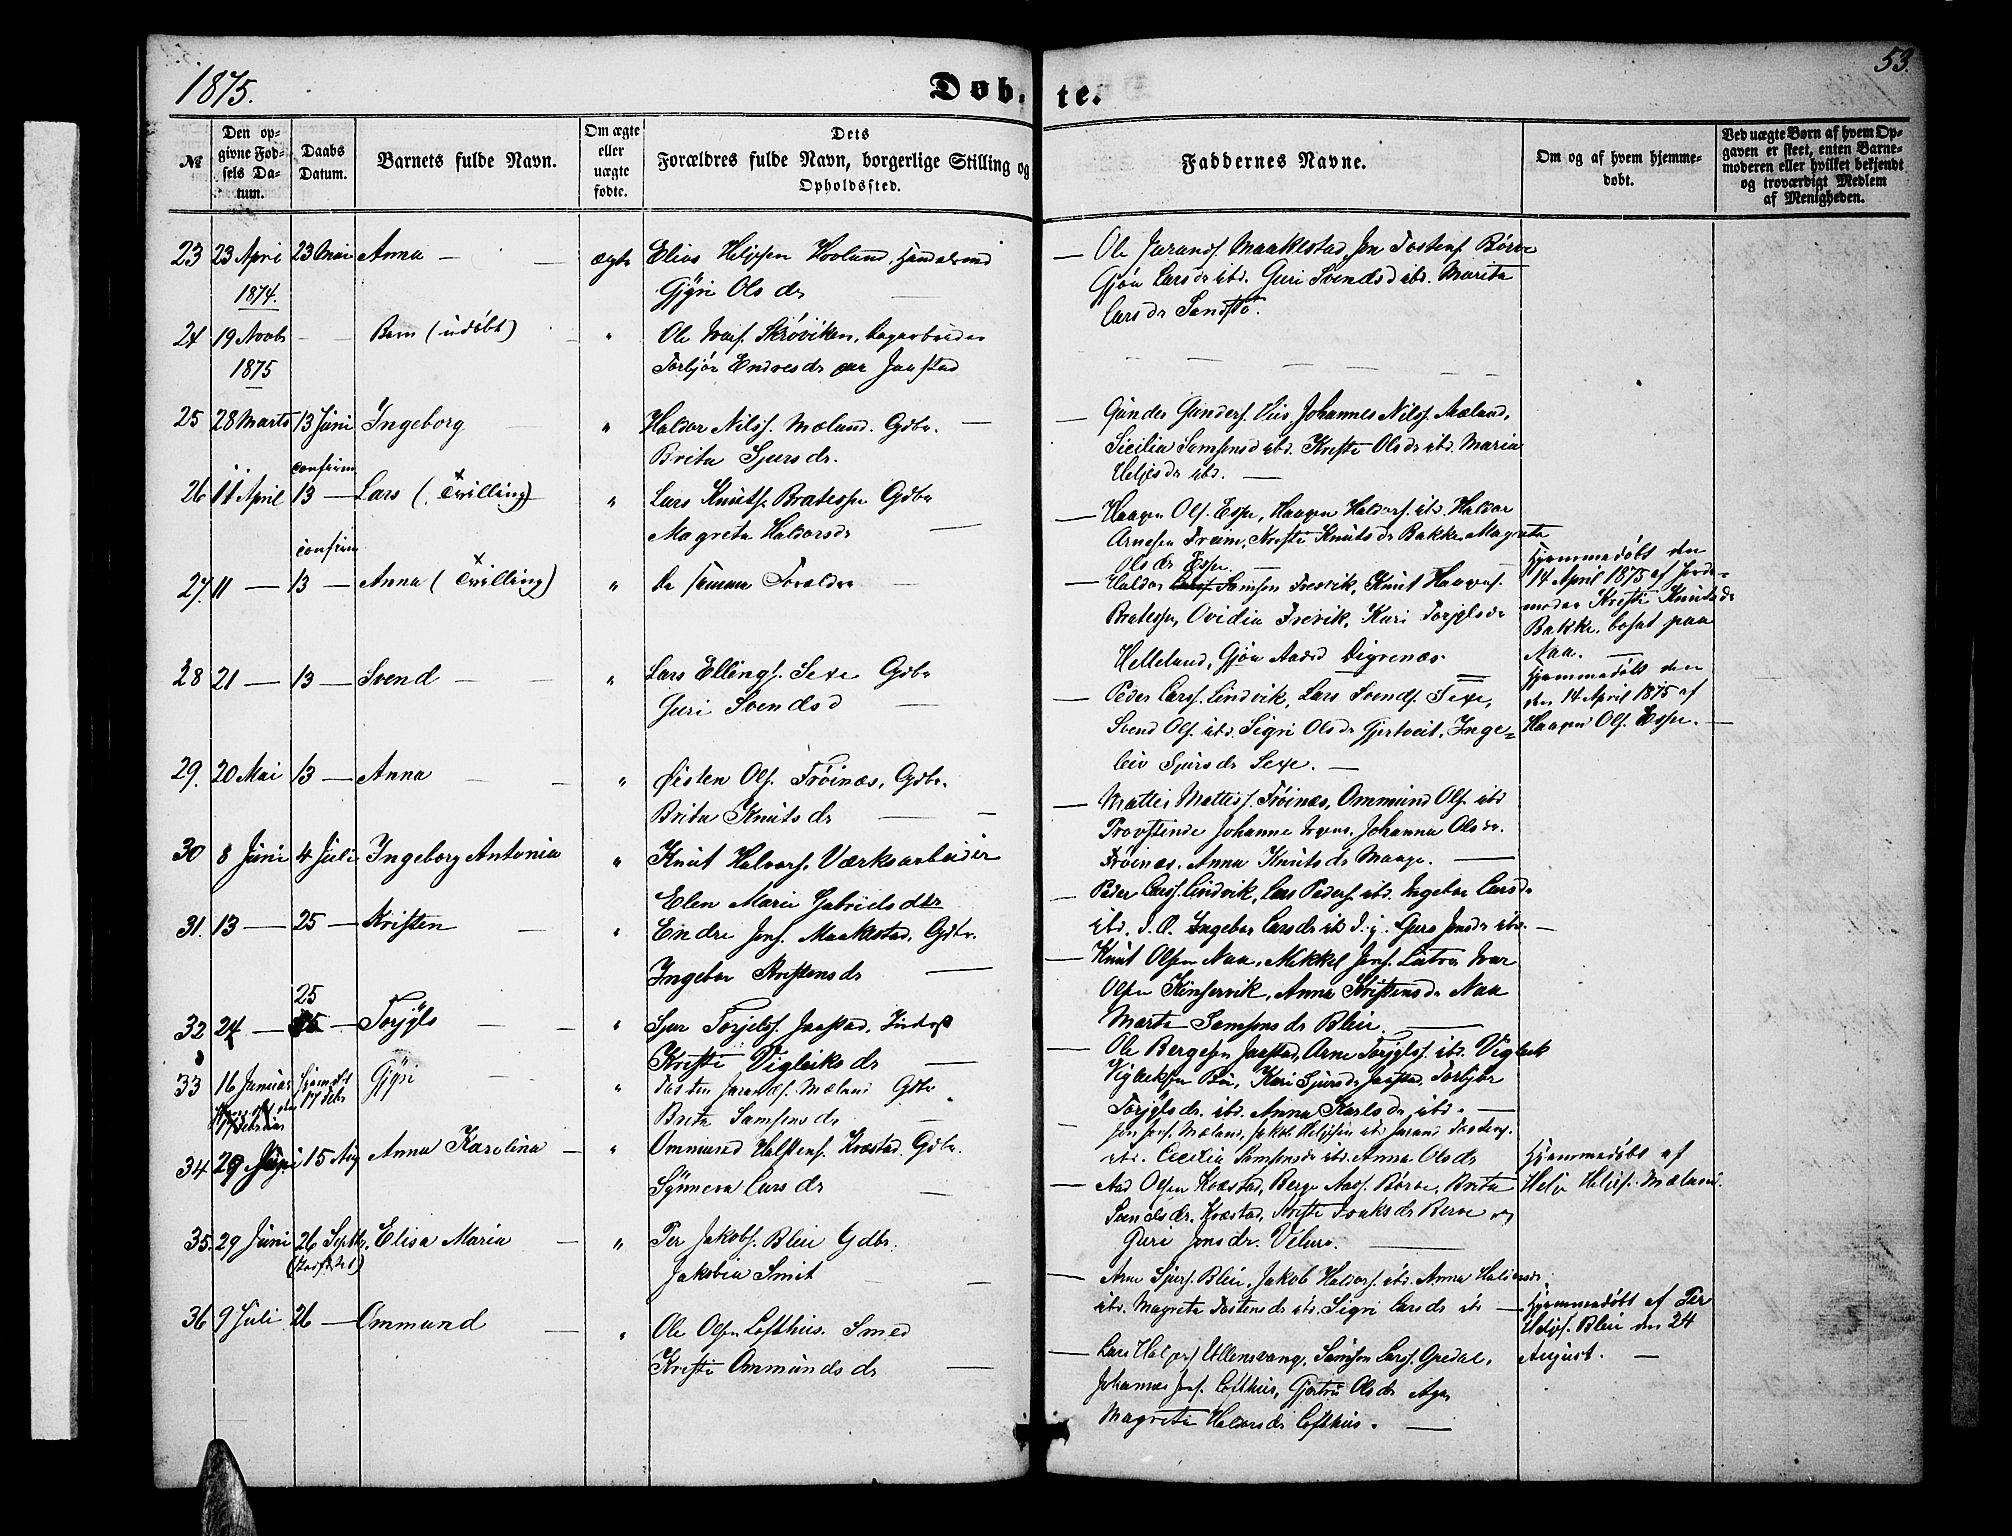 1875.
Døb-
te.
53.
№
Den op-
givne Fød-
sels Da-
tum.
Daabs
Datum.
Barnets fulde Navn.
Om ægte
eller
uægte
fødte.
Dets
Forældres fulde Navn, borgerlige Stilling og
Opholdssted.
Faddernes Navne.
Om og af hvem hjemme-
døbt.
Ved uægte Børn af hvem Op-
gaven er skeet, enten Barne-
moderen eller hvilket bekjendt
og troværdigt Medlem
af Menigheden.
23 23 April 23 Mai Anna — ægte Elias Heljesen Hovland,
Gjøri Olsdr
— Ole Jarands. Maakestad, Jon Tostens. Børve
Gjøa Larsdr ibd. Guri Svendsd ibd. Marita
Larsdr Sandstø.
1874.
24 19 Novbr — Barn (udøbt) — " Ole Ivars. Skrøviken, Dagarbeider
Torbjør Endresdr paa Jaastad
1875
25 28 Marts 13 Juni Ingeborg — " Haldor Nilss. Mæland. Gdbr. —
Brita Sjursdr.
— Gunder Gunders. Viis, Johannes Nilss. Mæland,
Sicilia Samsonsd ibd. Kristi Olsdr ibd. Maria
Heljesdr ibd. —
confirm
26 11 April 13 — Lars (Tvilling) " Lars Knuts. Bratespe Gdbr
Magreta Haldorsdr —
— Haagen Ols. Espe, Haagen Haldors. ibd. Haldor
Arnesen Freim, Kristi Knutsdr Bakke, Magreta
Olsdr Espe. —
confirm
27. 11 — 13 — Anna (Tvilling) " De samme Forældre —
— Haldor Samson Tresvik, Knut Haagens.
Bratespe, Ovidia Frevik, Kari Torjylsdr
Helleland, Gjøa Aadsd Digrenæs
Hjemmedøbt den
14 April 1875 af Jorde-
moder Kristi Knutsdr
Bakke, bosat paa
Naa. —
28 21 — 13 — Svend — " Lars Ellings. Sexe Gdbr
Guri Svendsd —
— Peder Larss. Lindvik, Lars Svends. Sexe,
Svend Ols. ibd. Sigri Olsdr Gjertveit, Inge-
leiv Sjursdr Sexe. —
Hjemmedøbt den
den 14 April 1875 af
Haagen Ols. Espe. —
29. 20 Mai 13 — Anna — " Øisten Ols. Trøinæs, Gdbr.
Brita Knutsdr —
— Mattis Mattiss. Trøinæs, Ommund Ols. ibd
Provstinde Johanne Johanna Olsdr.
Trøinæs, Anna Knutsdr Maage. —
30 8 Juni 4 Juli Ingeborg Antonia " Knut Halvors. Værksarbeider
Elen Marie Gabrielsdtr
— Peder Larss. Lindvik, Lars Peders. ibd. Ingebor Larsdr
ibd. Ingebor Larsdr ibd Guro Jonsdr ibd. —
31. 13 — 25 — Kristen — " Endre Jons. Maakestad, Gdbr.
Ingebor Kristensdr —
— Knut Olsen Naa, Mikkel Jons. Lutro Ivar
Olsen Kinservik, Anna Kristensdr Naa
Marta Samsonsdr Bleie. —
25
32 24 — Torjyls — " Sjur Torjels. Jaastad, Inderst
Kristi Vigleiksdr —
— Ole Bergesen Jaastad, Arne Torjyls. ibd. Vigleik
Vigleiksen Bu, Kari Sjursdr Jaastad, Torbjør
Torjylsdr. ibd. Anna Karlsdr, ibd. —
33 16 Januar Hjemdøbt
17 Febr Gjøri — " Tosten Jarands. Mæland Gdbr
17 Februar
Brita Samsonsdr —
— Jon Jons. Mæland, Jakob Heljesen ibd Jarand Tostens.
ibd. Cecilia Samsonsdr ibd. Anna Olsdr
Hjemmedøbt af
Helje Heljes. Mæland.
34 29 Juni 15 Aug Anna Karolina — " Ommund Halstens. Kvæstad, Gdbr.
Synneva Larsdr —
— Aad Olsen Kvæstad, Berge Aads. Børve, Brita
Svendsdr. Kvæstad, Kristi Isaksdr Berve og
Guri Jonsdr. Velure. —
35. 29 Juni 26 Septbr. Elisa Maria — " Per Jakobs. Bleie Gdbr.
(stadfæstet)
Jakobia Smit —
— Arne Sjurs. Bleie, Jakob Haldors. ibd. Anna Haldorsdr
ibd. Magreta Tostensdr ibd. Sigri Larsdr ibd —
Hjemmedøbt af Per
Heljes. Bleie den 24
August. —
36 9 Juli 26 — Ommund — " Ole Olsen Lofthus. Smed
Kristi Ommundsdr —
— Lars Ullensvang, Samson Larss. Opedal,
Johannes Jons. Lofthus, Gjertru Olsdr Aga,
Magreta Haldorsdr Lofthus. —